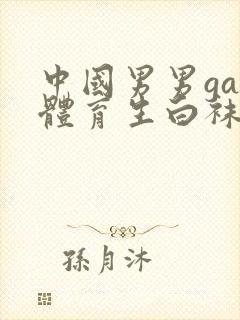 中國男男ga
體育生白袜
孫月沐